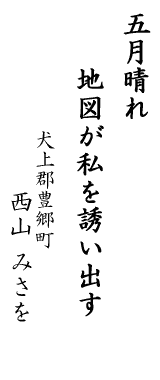 五月晴れ
地図が私を誘い出す
犬上郡豊郷町
西山 みさを